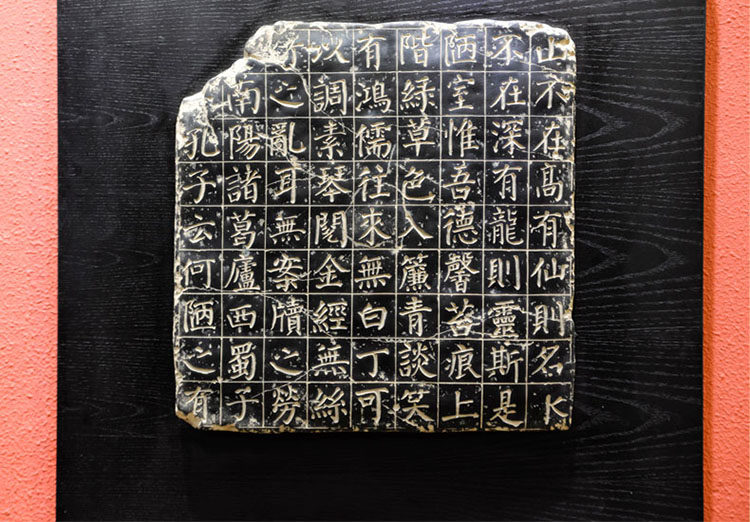 山不在高有仙則名水
不在深有龍則靈斯是
陋室惟吾德馨苔痕上
階綠草色入簾青談笑
有鴻儒往來無白丁可
以調素琴閱金經無絲
竹之亂耳無案牘之勞
南陽諸葛廬西蜀子
孔子云何陋之有